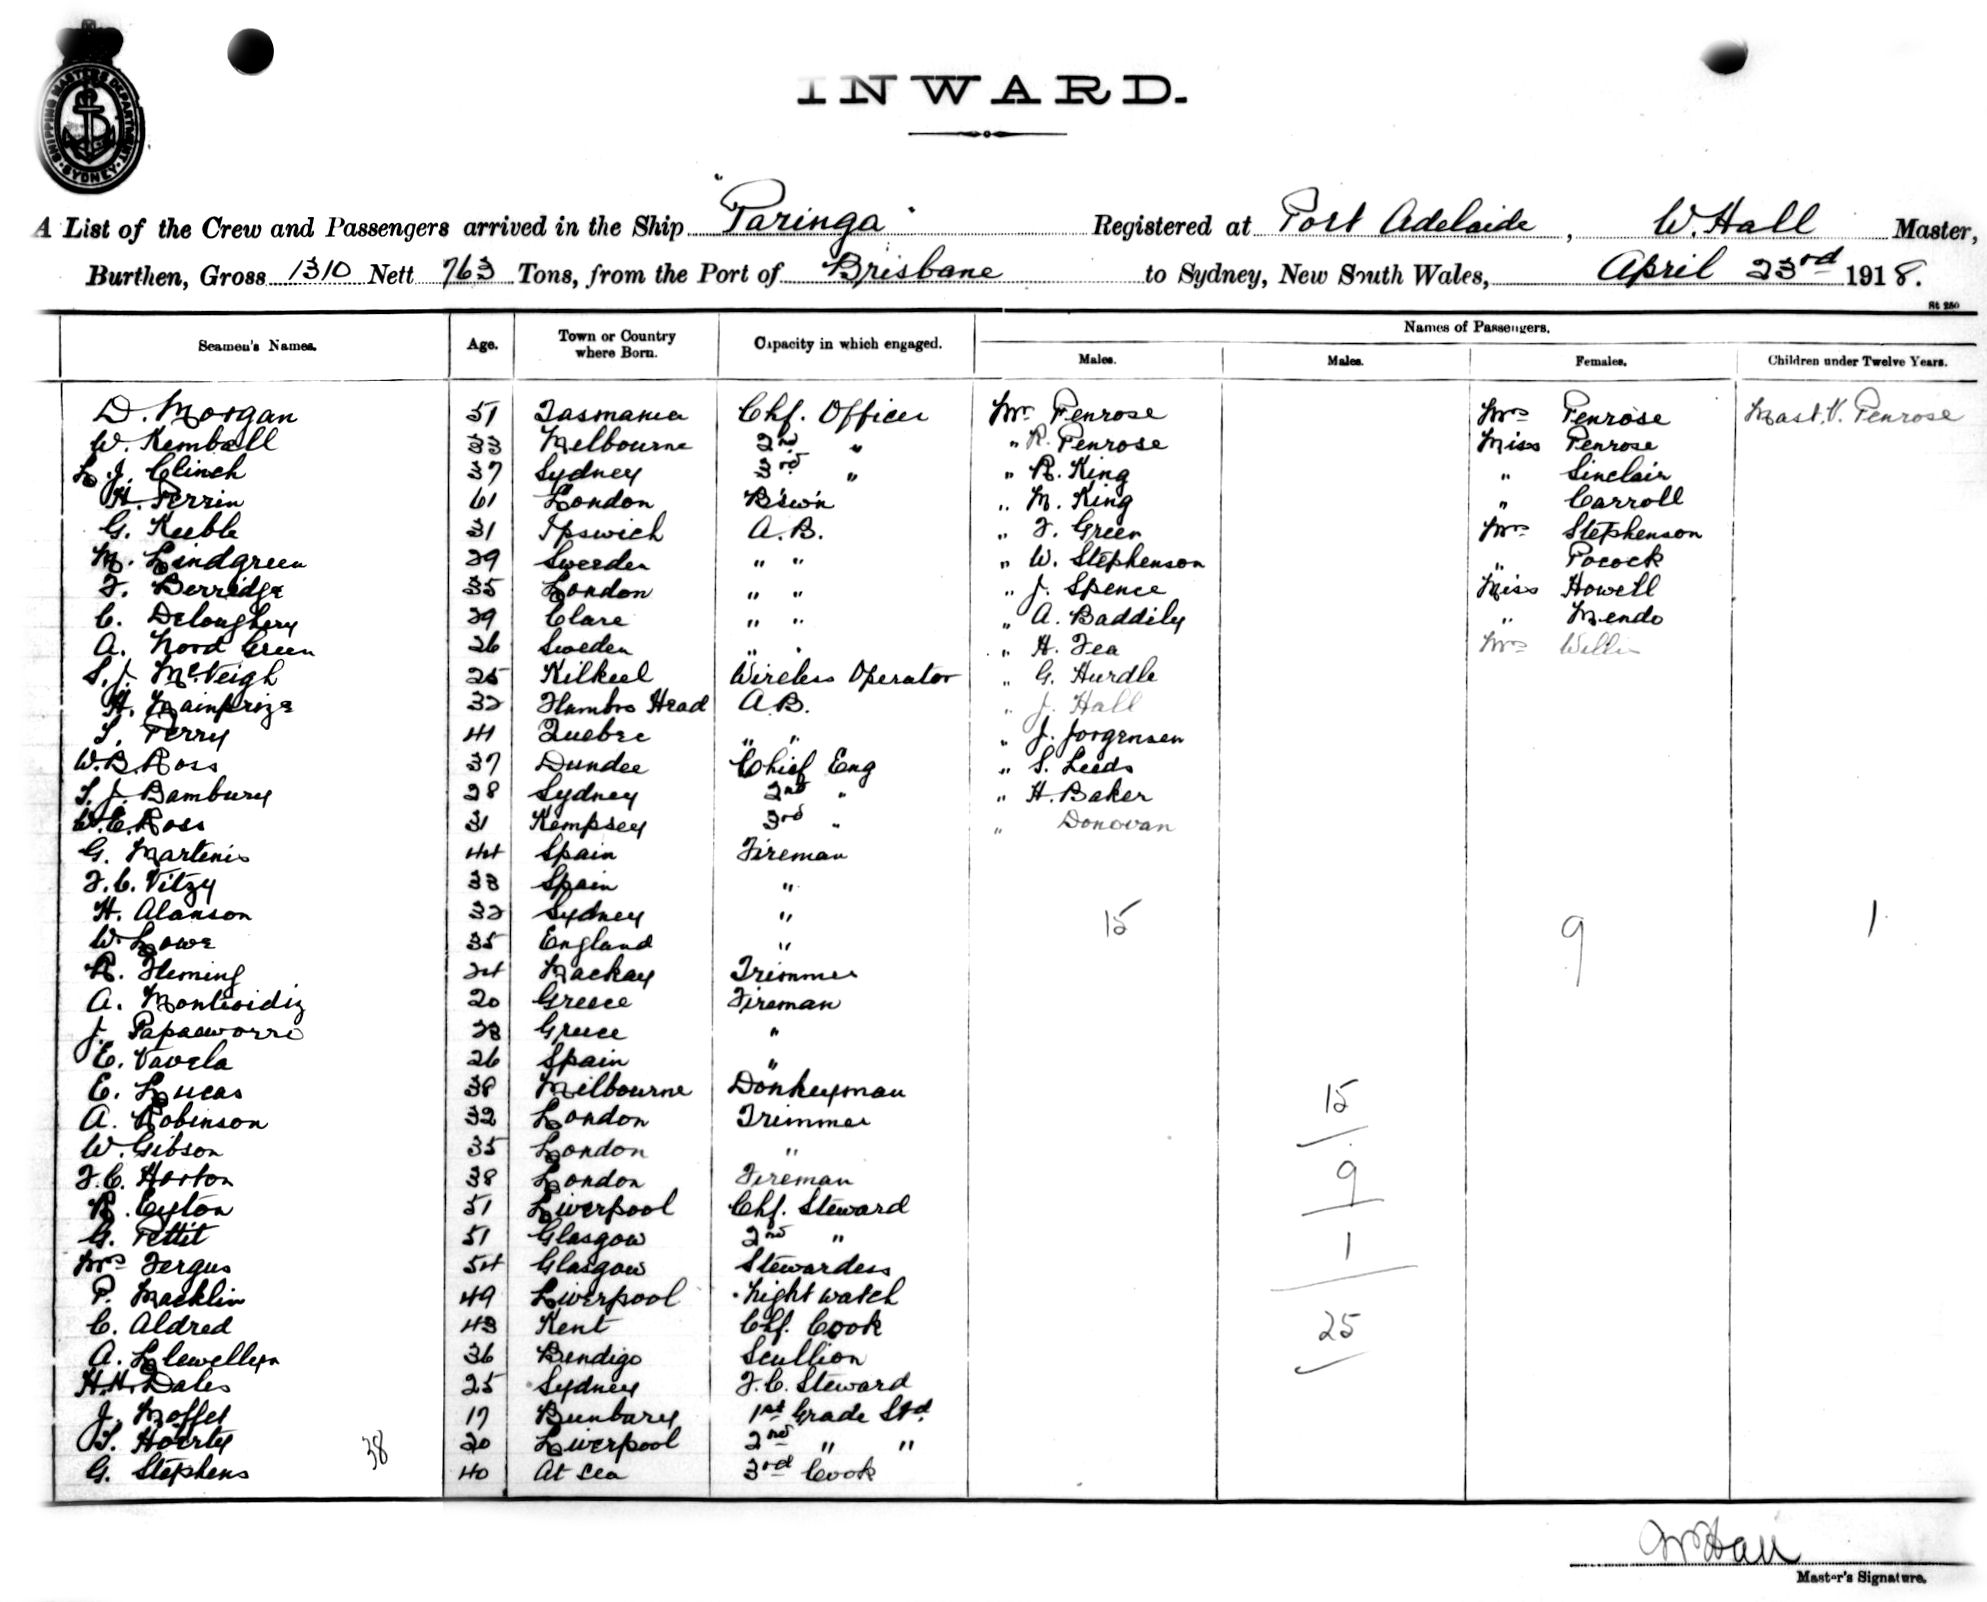 SHIPPING MASTERS DEPARTMENT
SYDNEY
INWARD.
A List of the Crew and Passengers arrived in the Ship "Paringa" Registered at Port Adelaide, W. Hall Master,
Burthen, Gross 1310 Nett 763 Tons, from the Port of Brisbane to Sydney, New South Wales, April 23rd 1918.
St 250
Names of Passengers.
Seamen's Names. Age. Town or Country where Born. Capacity in which engaged. Males. Males. Females. Children under Twelve Years.
D. Morgan 51 Tasmania Chf. Officer Mr. Penrose Mrs Penrose Mast. V. Penrose
W. Kemball 33 Melbourne 2nd " " R. Penrose Miss Penrose
L. J. Clinch 37 Sydney 3rd " " R. King " Sinclair
H. Perrin 61 London B'sw'n " M. King " Carroll
G. Keeble 31 Ipswich A.B. " F. Green Mrs Stephenson
M. Lindgreen 29 Sweeden " " " W. Stephenson " Pocock
F. Berridge 35 London " " " J. Spence Miss Howell
C. Deloughery 29 Clare " " " A. Baddily " Mendo
A. Nord Green 26 Sweden " " " H. Fea Mrs Willis
S. J. McVeigh 25 Kilkeel Wireless Operator " G. Hurdle
H. Mainprize 32 Flambro Head A.B. " J. Hall
T. Perry 41 Quebec " " " J. Jorgensen
W. B. Ross 37 Dundee Chief Eng " S. Leeds
T. J. Bambury 28 Sydney 2nd " " H. Baker
W. E. Ross 31 Kempsey 3rd " " Donovan
G. Martenis 44 Spain Fireman
F. C. Vitzy 33 Spain "
H. Alanson 32 Sydney " 15 9 1
W. Lowe 35 England "
R. Fleming 24 Mackay Trimmer
A. 20 Greece Fireman
J. 28 Greece "
E. Vavela 26 Spain "
E. Lucas 38 Melbourne Donkeyman 15
A. Robinson 32 London Trimmer
W. Gibson 35 London "
F. C. Horton 38 London Fireman 9
R. Cyton 51 Liverpool Chf. Steward
G. Pettit 51 Glasgow 2nd " 1
Mrs Fergus 54 Glasgow Stewardess
P. Macklin 49 Liverpool Night watch
C. Aldred 43 Kent Chf. Cook 25
A. Llewellyn 36 Bendigo Scullion
H. H. Dales 25 Sydney F. C. Steward
J. Moffet 17 Bunbury 1st Grade Std.
T. Hoerty 20 Liverpool 2nd " "
G. Stephens 38 40 At Sea 3rd Cook
W Hall
Master's Signature.